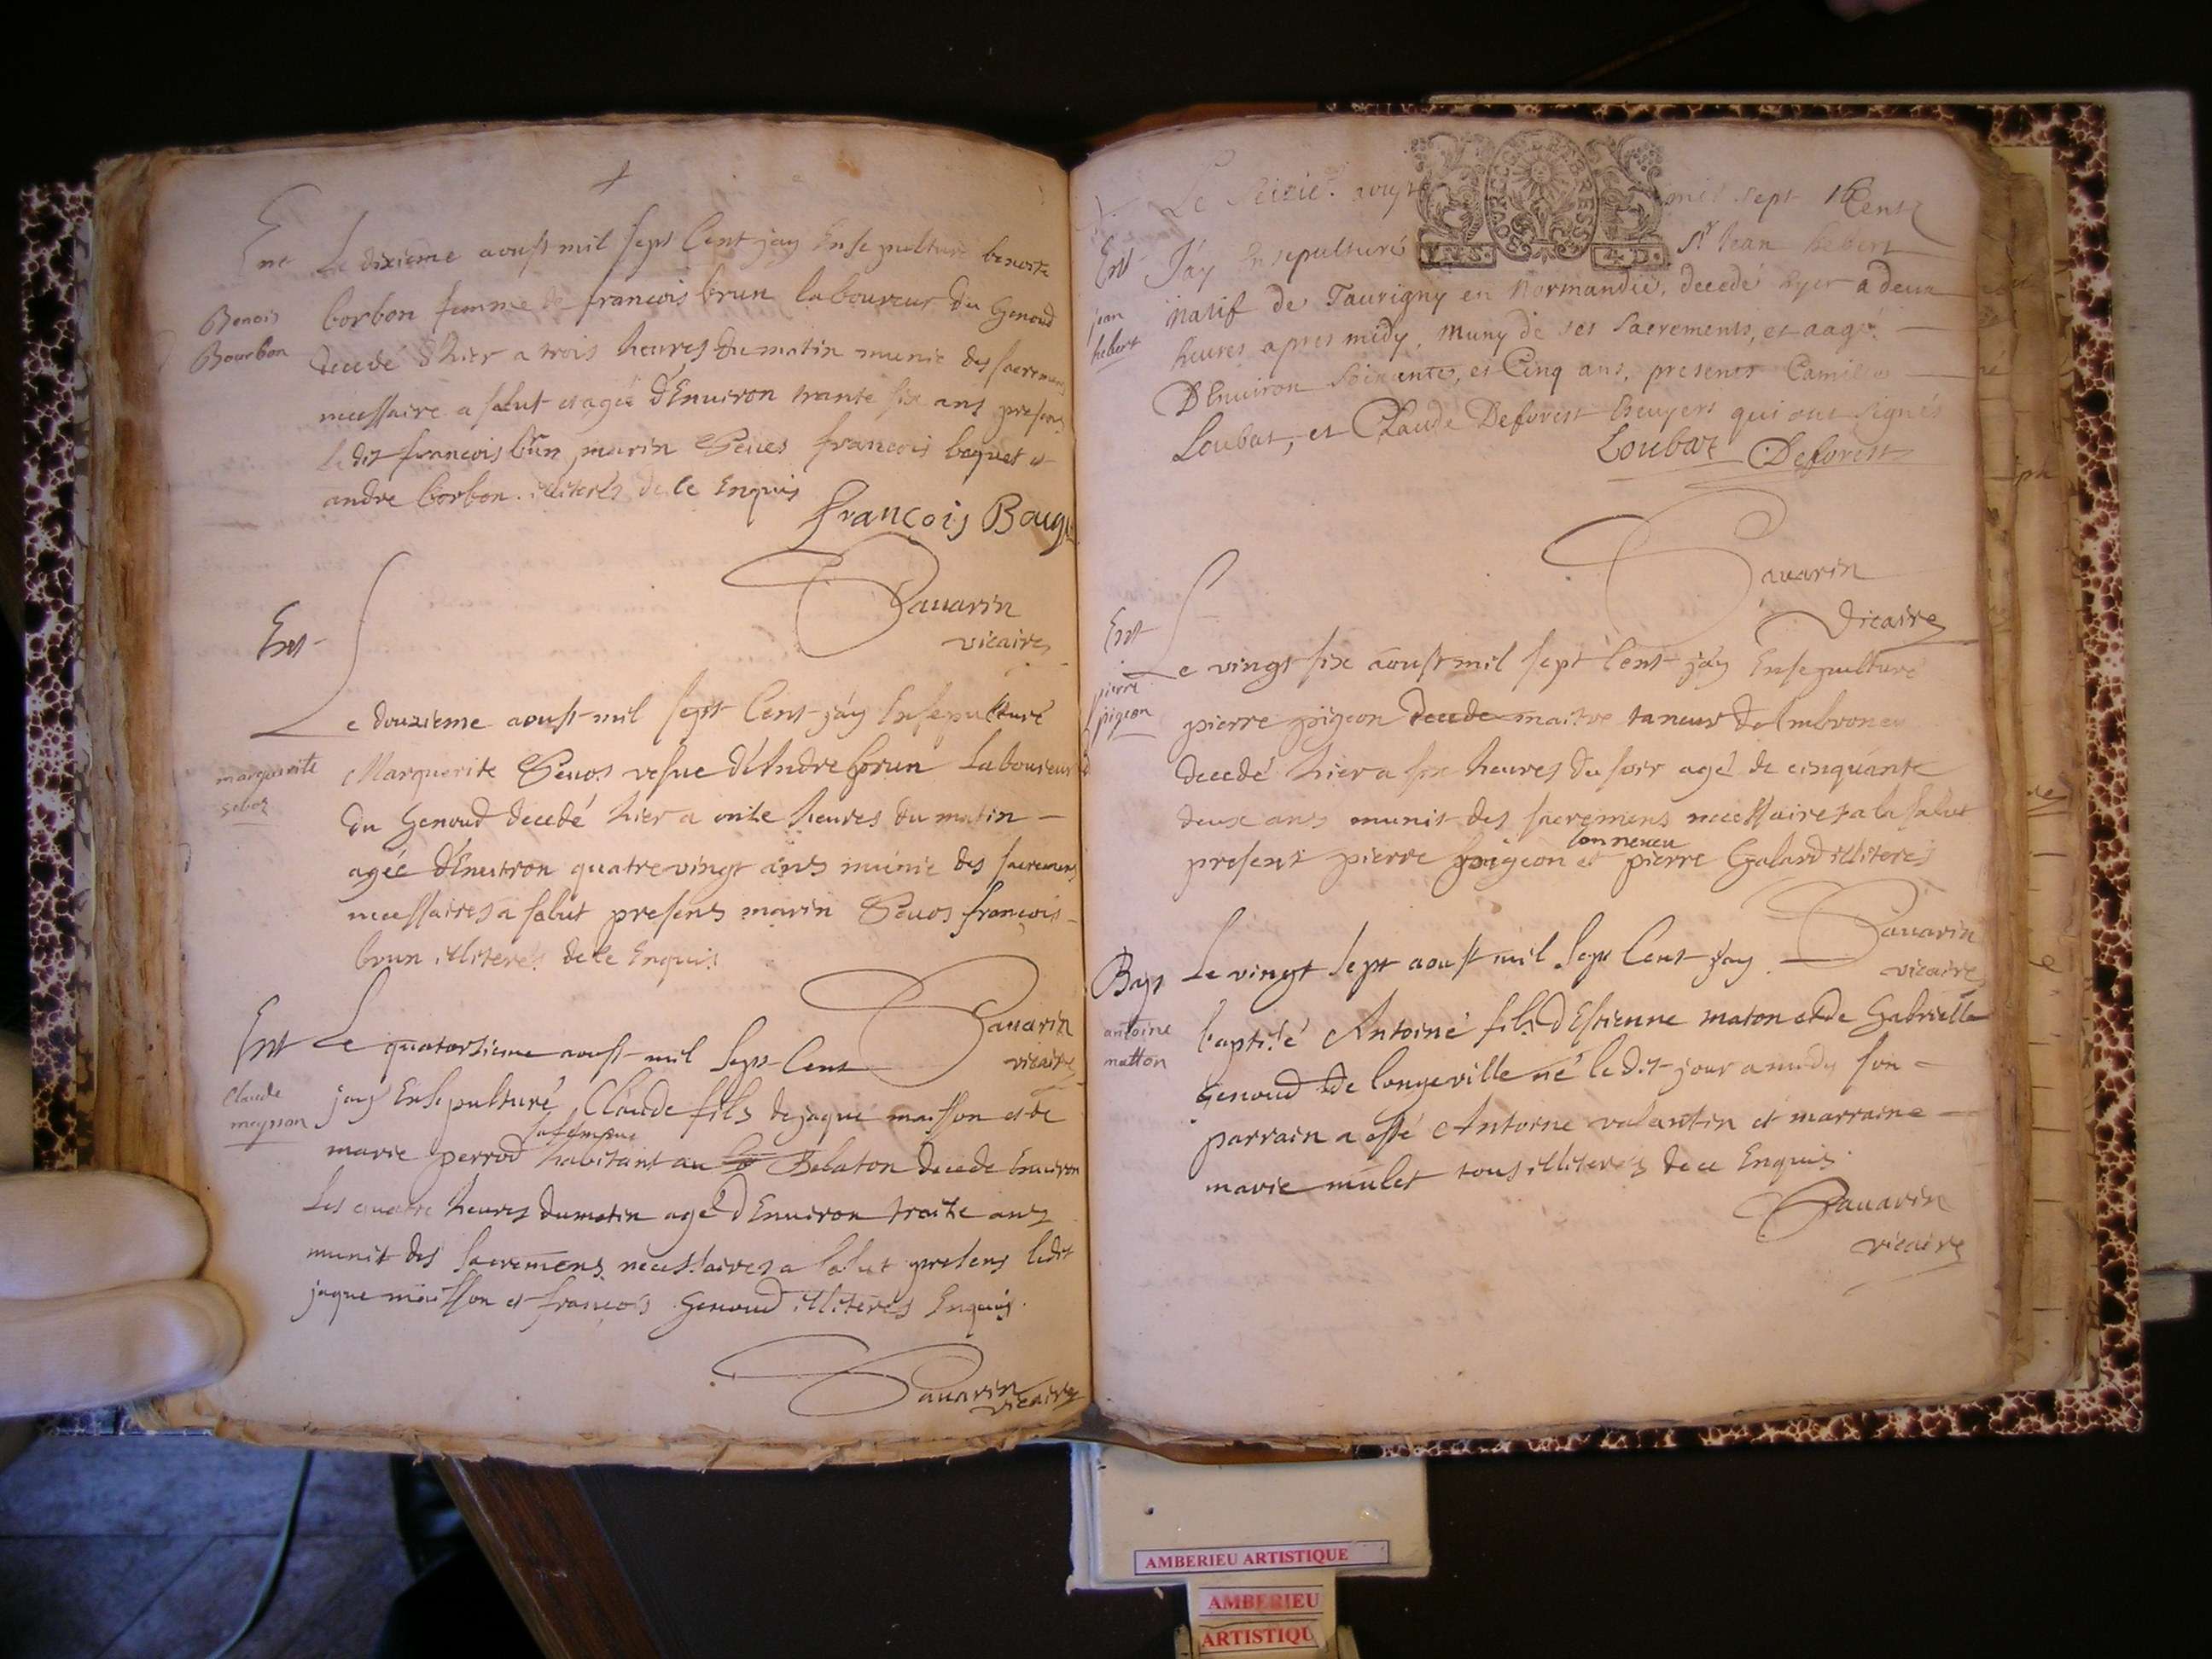 Ent Le dixieme aoust mil sept Cent jay Ensepulturé benoite
Benois
Bourbon
borbon femme de francois brun laboureur du Genoud
decedé d'hier a trois heures du matin munie des sacremens
necessaire a salut et agée d'Environ trante six ans presens
ledit francois brun, marin francois boquet et
andre borbon. illiterés de ce Enquis
françois Baug
Sauarin
vicaire
Ent
Le douzieme aoust mil sept Cent jay Ensepulturé
marguerite
Marguerite vesue d'Andre brun Laboureur
du Genoud decedé hier a onze heures du matin
agée d'Enuiron quatre vingt ans munie des sacremens
necessaires a salut presens marin francois
brun illiteres de ce Enquis
Sauarin
vicaire
Ent Le quatorsieme aoust mil sept Cent
Claude
meysson
jay Ensepulturé Claude fils de jaque maisson et de
sa femme
marie perrod habitant au Bebaton decede Enuiron
les quatre heures du matin agé d'Enuiron traize ans
munit des sacremens necessaires a salut presens ledit
jaque maisson et francois Genoud illiteres Enquis.
Sauarin
vicaire
Le Seizie. aoust mil sept Cent
MOY.NS. 4.D.
Ent Jáy Ensepulturé Sr Jean hebert
jean
hebert
natif de Taurigny en Normandie, decedé hyer a deux
heures apres midy, muny de ses Sacrements, et aagé
D'Enuiron Soixante, et Cinq ans, presents Camille
Loubat, et Claude Deforest Escuyers qui ont signés
Loubat Deforest
Sauarin
Vicaire
Ent
Le vingt six aoust mil sept Cent jáy Ensepulturé
pierre
pigeon
pierre pigeon decede maitre taneur d'Ambronay
decedé hier a six heures du soir agé de cinquante
deux ans munit des sacremens necessaires a la salut
son neueu
present pierre pigeon et pierre Galard illiterés
Sauarin
vicaire
Bap Le vingt sept aoust mil sept Cent jay
antoine
matton
baptisé Antoine fils d'Estienne maton et de Gabrielle
Genoud de longeville né le dit jour a midy son
parrain a esté Antoine valantin et marraine
marie mulet tous illiterés de ce Enquis
Sauarin
vicaire
AMBERIEU ARTISTIQUE
AMBERIEU
ARTISTIQU